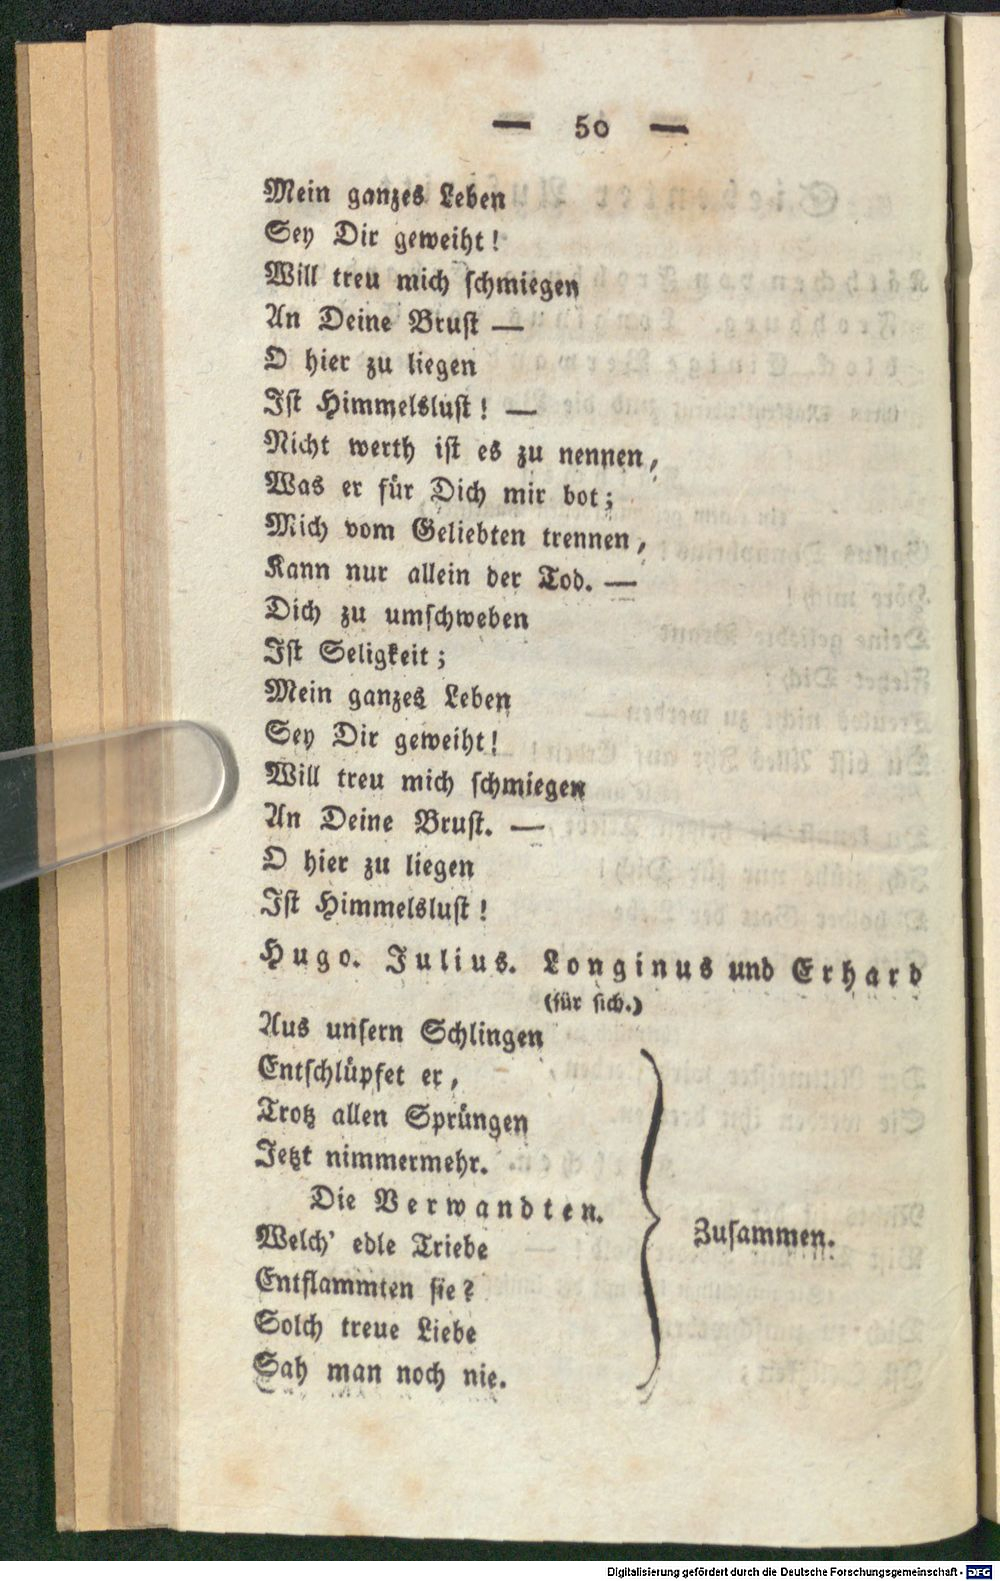 — 50 —
Mein ganzes Leben
Sey Dir geweiht!
Will treu mich schmiegen
An Deine Brust —
O hier zu liegen
Ist Himmelslust! —
Nicht werth ist es zu nennen,
Was er für Dich mir bot;
Mich vom Geliebten trennen,
Kann nur allein der Tod. —
Dich zu umschweben
Ist Seligkeit;
Mein ganzes Leben
Sey Dir geweiht!
Will treu mich schmiegen
An Deine Brust. —
O hier zu liegen
Ist Himmelslust!
Hugo. Julius. Longinus und Erhard
(für sich.)
Aus unsern Schlingen
Entschlüpfet er,
Trotz allen Sprüngen
Jetzt nimmermehr.
Die Verwandten.
Zusammen.
Welch' edle Triebe
Entflammten sie?
Solch treue Liebe
Sah man noch nie.
Digitalisierung gefördert durch die Deutsche Forschungsgemeinschaft - DFG